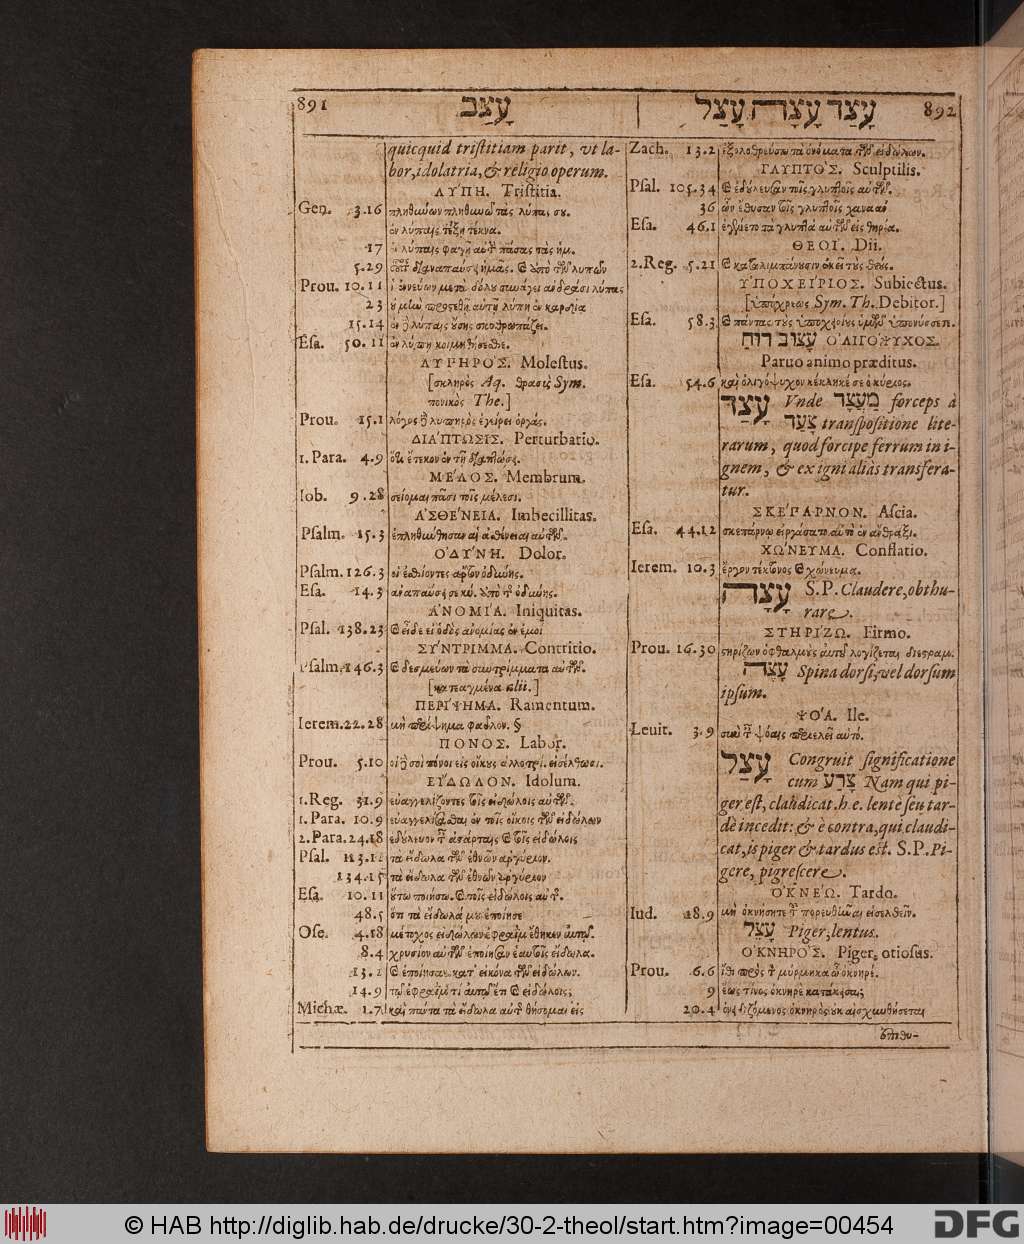 891 עָצַב
quicquid tristitiam parit, vt la-
bor, idolatria, & religio operum.
ΛΎΠΗ. Tristitia.
Gen. 3.16 πληθύνων πληθυνῶ τὰς λύπας σου.
ἐν λύπαις τέξῃ τέκνα.
17 ἐν λύπαις φαγῇ αὐτὴν πάσας τὰς ἡμ.
5.29
Prou. 10.11
23
15.14
Esa. 50.11 ἐν λύπῃ κοιμηθήσεσθε.
ΛΥΠΗΡΌΣ. Molestus.
[σκληρὸς Aq. θρασὺς Sym.
πονικὸς The.]
Prou. 15.1 λόγος δὲ λυπηρὸς ἐγείρει ὀργάς.
ΔΙΆΠΤΩΣΙΣ. Perturbatio.
1. Para. 4.9 ὅτι ἔτεκον ἐν τῇ διαπτώσει.
ΜΈΛΟΣ. Membrum.
Iob. 9.28 σείομαι πᾶσι τοῖς μέλεσι.
ἈΣΘΈΝΕΙΑ. Imbecillitas.
Psalm. 15.3 ἐπληθύνθησαν αἱ ἀσθένειαι αὐτῶν.
ὈΔΎΝΗ. Dolor.
Psalm. 126.3 οἱ ἐσθίοντες ἄρτον ὀδύνης.
Esa. 14.3 ὀδύνης.
ἈΝΟΜΊΑ. Iniquitas.
Psal. 138.23 καὶ εἶδε εἰ ὁδὸς ἀνομίας ἐν ἐμοὶ
ΣΎΝΤΡΙΜΜΑ. Contritio.
Psalm. 146.3 καὶ δεσμεύων τὰ συντρίμματα αὐτῶν.
[κατεαγμένα alii.]
ΠΕΡΊΨΗΜΑ. Ramentum.
Ierem. 22.28 μὴ περίψημα φαῦλον. §
ΠΟΝΟΣ. Labor.
Prou. 5.10 οἱ δὲ σοὶ πόνοι εἰς οἴκους ἀλλοτρί. εἰσέλθωσι.
ΕΊΔΩΛΟΝ. Idolum.
1. Reg. 31.9 εὐαγγελίζοντες τοῖς εἰδώλοις αὐτῶν.
1. Para. 10.9 εὐαγγελίσασθαι ἐν τοῖς οἴκοις τῶν εἰδώλων
2. Para. 24.18 εἰδώλοις
Psal. 113.12 τὰ εἴδωλα τῶν ἐθνῶν ἀργύριον.
134.15 τὰ εἴδωλα τῶν ἐθνῶν ἀργύριον
Esa. 10.11 οὕτω ποιήσω. καὶ τοῖς εἰδώλοις αὐτ.
48.5 ὅτι τὰ εἴδωλά μου ἐποίησε
Ose. 4.18 μέτοχος εἰδώλων ἐφραὶμ ἔθηκεν
8.4 χρυσίον αὐτῶν ἐποίησαν ἑαυτοῖς εἴδωλα.
13.2 καὶ ἐποίησαν κατ' εἰκόνα τῶν εἰδώλων.
14.9 τῷ ἐφραὶμ τί αὐτῷ ἔτι καὶ εἰδώλοις;
Michæ. 1.7 καὶ πάντα τὰ εἴδωλα αὐτῆς θήσομαι εἰς
עָצַד עָצָה עָצַל 892
Zach. 13.2 ἐξολοθρεύσω τὰ ὀνόματα τῶν εἰδώλων.
ΓΛΥΠΤΌΣ. Sculptilis.
Psal. 105.34 καὶ ἐδούλευσαν τοῖς γλυπτοῖς αὐτῶν.
36 ὧν ἔθυσαν τοῖς γλυπτοῖς χαναὰν
Esa. 46.1 ἐγένετο τὰ γλυπτὰ αὐτῶν εἰς θηρία.
ΘΕΟΊ. Dii.
2. Reg. 5.21 καὶ καταλιμπάνουσιν ἐκεῖ τοὺς θεούς.
ὙΠΟΧΕΊΡΙΟΣ. Subiectus.
[ὑπόχρεως Sym. Th. Debitor.]
Esa. 58.3 καὶ πάντας τοὺς ὑποχειρίους ὑμῶν ὑπονύσσετ.
עֲצוּב רוּחַ ὈΛΙΓΌΨΥΧΟΣ.
Paruo animo præditus.
Esa. 54.6 καὶ ὀλιγόψυχον κέκληκέ σε ὁ κύριος.
עָצַד Vnde מַעֲצָד forceps à
צָעַד transpositione lite-
rarum, quod forcipe ferrum in i-
gnem, & ex igni aliàs transfera-
tur.
ΣΚΈΠΑΡΝΟΝ. Ascia.
Esa. 44.12 σκεπάρνῳ εἰργάσατο αὐτὸ ἐν ἄνθραξι.
ΧΏΝΕΥΜΑ. Conflatio.
Ierem. 10.3 ἔργον τέκτονος καὶ χώνευμα.
עָצָה S. P. Claudere, obthu-
rare.
ΣΤΗΡΊΖΩ. Firmo.
Prou. 16.30 στηρίζων ὀφθαλμοὺς αὐτοῦ λογίζεται διεστραμ.
עָצֶה Spina dorsi, vel dorsum
ipsum.
ΨΌΑ. Ile.
Leuit. 3.9 σὺν ταῖς ψόαις περιελεῖ αὐτό.
עָצַל Congruit significatione
cum צָרַע Nam qui pi-
ger est, claudicat. h. e. lente seu tar-
dè incedit: & è contra, qui claudi-
cat, is piger & tardus est. S. P. Pi-
gere, pigrescere.
ὈΚΝΈΩ. Tardo.
Iud. 18.9 μὴ ὀκνήσητε τοῦ πορευθῆναι εἰσελθεῖν.
עָצֵל Piger, lentus.
ὈΚΝΗΡΌΣ. Piger, otiosus.
Prou. 6.6 ἴθι πρὸς τὸν μύρμηκα ὦ ὀκνηρέ.
9 ἕως τίνος ὀκνηρὲ κατάκεισαι;
20.4 ὀνειδιζόμενος ὀκνηρὸς οὐκ αἰσχυνθήσεται
ἐπιθυ-
© HAB http://diglib.hab.de/drucke/30-2-theol/start.htm?image=00454
DFG